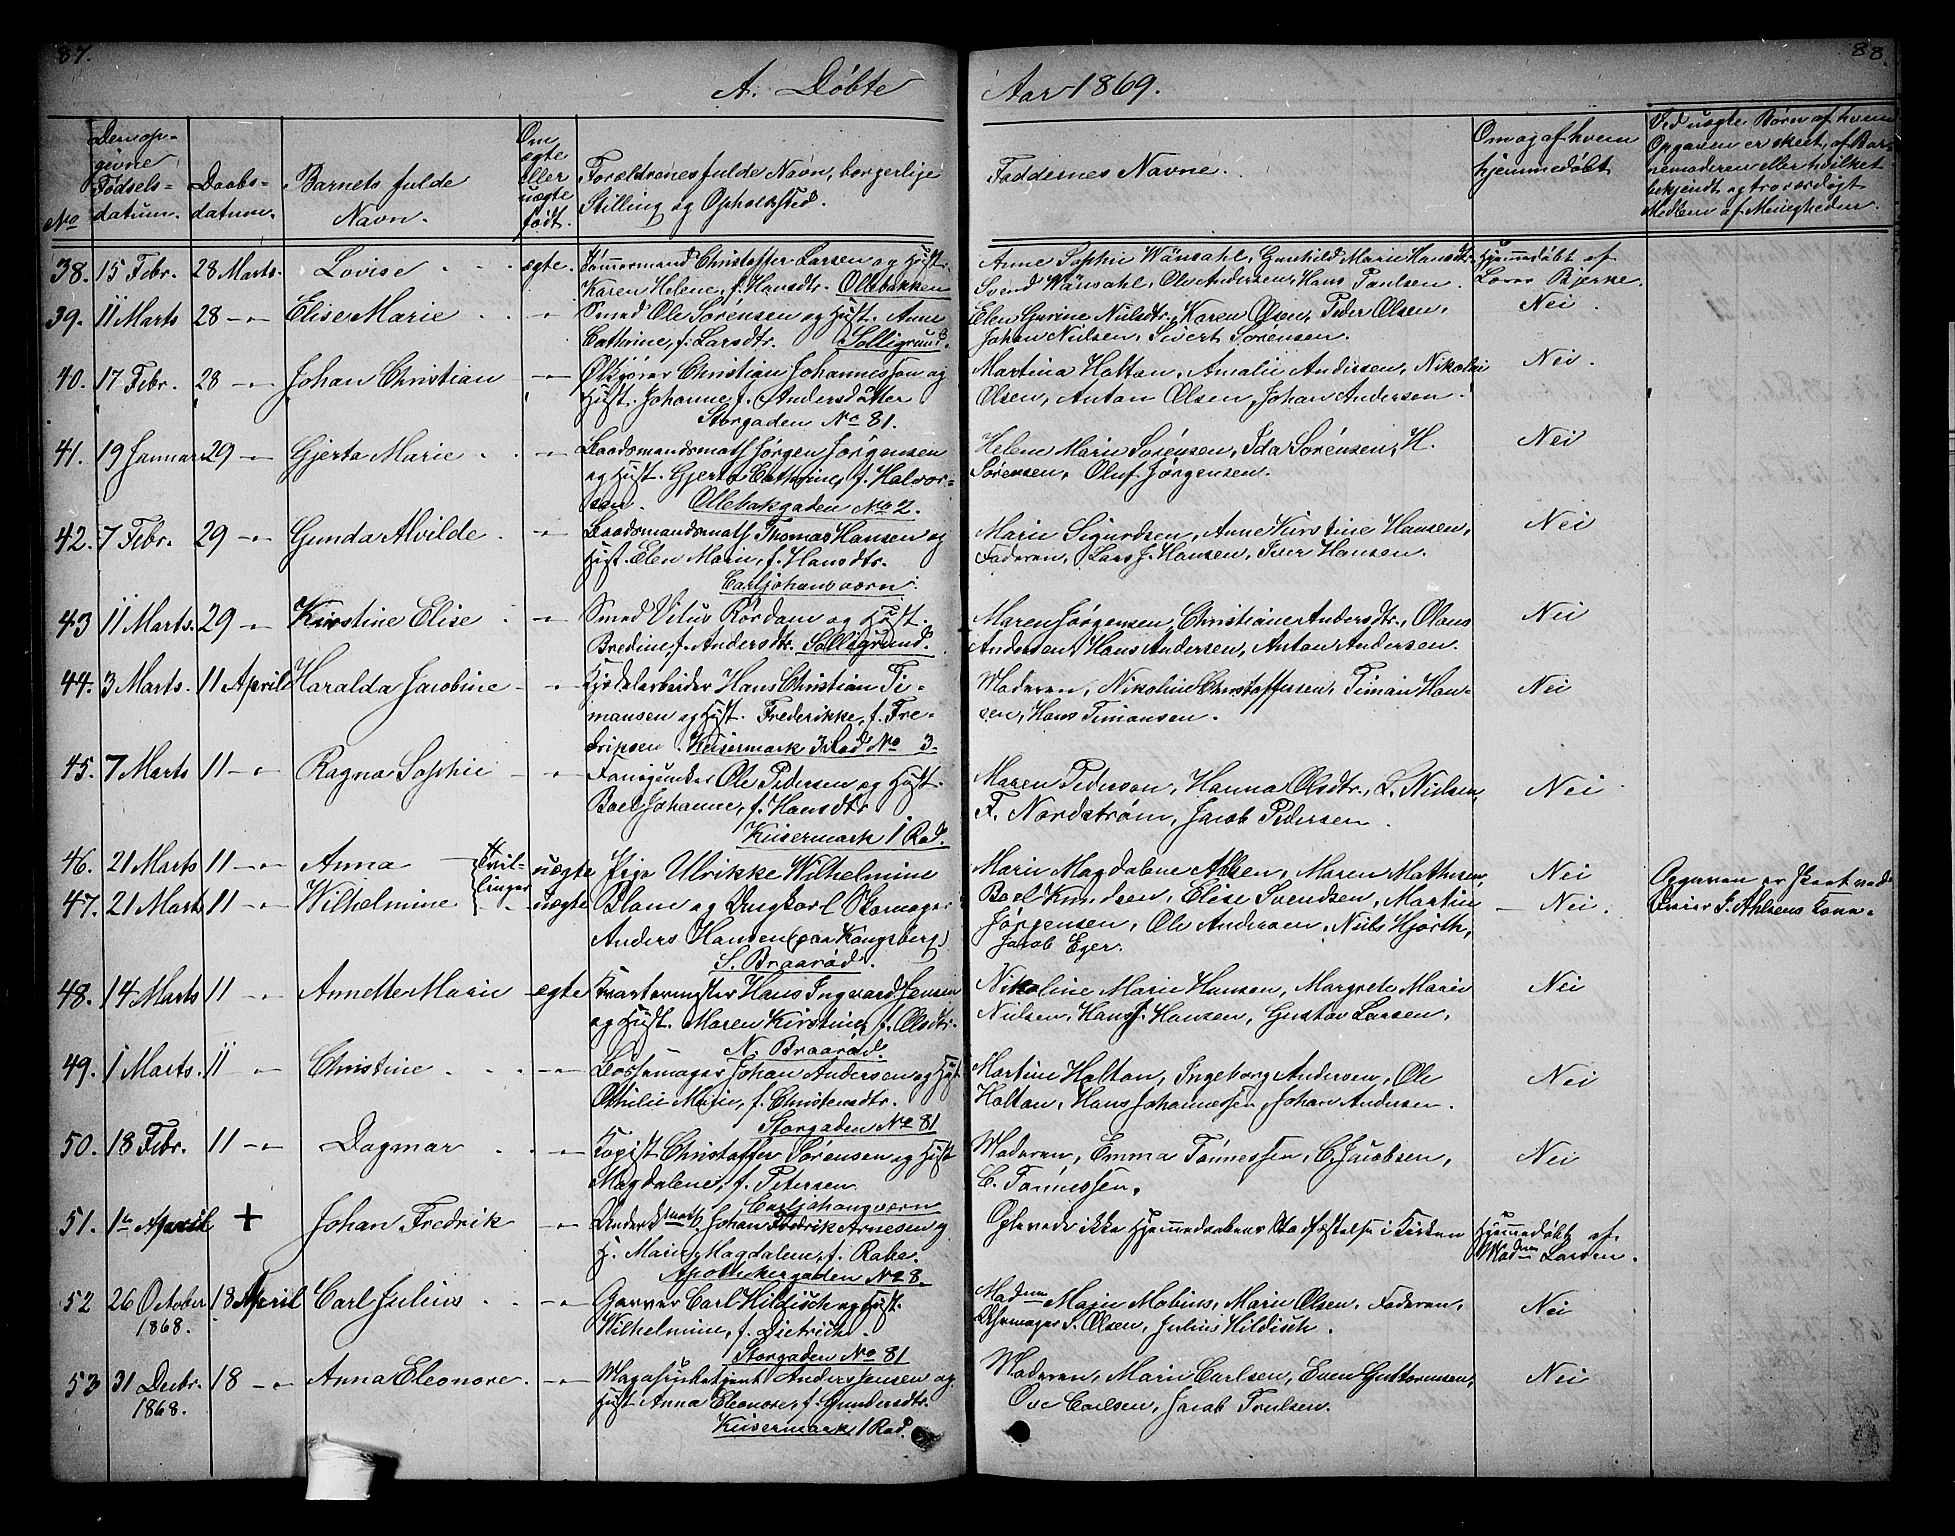 87.
88.
A. Døbte
Aar 1869.
No
Den op-
givne
Fødsels-
datum.
Daabs-
datum.
Barnets fulde
Navn.
Om
ægte
eller
uægte
født.
Forældrenes fulde Navn, borgerlige
Stilling og Opholdsted.
Faddernes Navne.
Om og af hvem
hjemmedøbt
Ved uægte Børn af hvem
Opgaven er skeet, af Bar-
nemoderen eller hvilket
bekjendt og troværdigt
Medlem af Menigheden.
38. 15 Febr. 28 Marts. Lovise ægte. Tømmermand Christoffer Larsen og Hust.
Karen Helene, f. Hansdtr. Ollebakken
Anne Sophie Wänsahl, Gunhild Marie Hansdtr.
Svend Wänsahl, Ole Andersen, Hans Paulsen.
Hjemmedøbt af
Bjerke.
39. 11 Marts 28 -"- Elise Marie -"- Smed Ole Sørensen og Hust. Anne
Cathrine, f. Larsdtr. Solligrund.
Elen Gurine Nielsdtr., Karen Olsen, Peder Olsen,
Johan Nielsen, Sivert Sørensen.
Nei
40. 17 Febr. 28 -"- Johan Christian -"- Christian Johannessen og
Hust. Johanne, f. Andersdatter
Storgaden No 81.
Martina Holtan, Amalie Andersen, Nikolai
Olsen, Anton Olsen, Johan Andersen.
Nei.
41. 19 Januar 29 -"- Gjerta Marie -"- Baadsmandsmath Jørgen Jørgensen
og Hust. Gjerta Cathrine, f. Halvor-
sen. Ollebakgaden No 2.
Helene Marie Sørensen, Ida Sørensen, H.
Sørensen, Oluf Jørgensen.
Nei
42. 7 Febr. 29 -"- Gunda Alvilde -"- Baadsmandsmath Thomas Hansen og
Hust. Elen Marie, f. Hansdtr.
Carljohansværn.
Marie Sigurdsen, Anne Kirstine Hansen,
Faderen, Lars J. Hansen, Iver Hansen.
Nei
43 11 Marts. 29 -"- Kirstine Elise -"- Smed Vitus Rørdam og Hust.
Bredine, f. Andersdtr. Solligrund.
Maren Jørgensen, Christiane Andersdtr., Olaus
Andersen, Hans Andersen, Anton Andersen.
Nei
44. 3 Marts. 11 April Haralda Jacobine -"- Hans Christian Ti-
mansen og Hust. Frederikke, f. Fre-
driksen. Keisermark 3 Rad No 3.
Moderen, Nikoline Christoffersen, Timan Han-
sen, Hans Timansen.
Nei
45. 7 Marts 11 -"- Ragna Sophie -"- Ole Pedersen og Hust.
Boel Johanne, f. Hansdtr
Keisermark 1 Rad.
Maren Pedersen, Hanna Olsdtr., L. Nielsen,
F. Nordstrøm, Jacob Pedersen.
Nei
46. 21 Marts 11 -"- Anna Tvil-
linger uægte Pige Ulrikke Wilhelmine
47. 21 Marts 11 -"- Wilhelmine uægte Blom og Ungkarl Skomager
Anders Hansen (paa Kongsberg)
S. Braarød.
Marie Magdalene Ahlsen, Maren Mathisen,
Boel Knudsen, Elise Svendsen, Martin
Jørgensen, Ole Andersen, Niels Hjorth,
Jacob Eger.
Nei
Nei.
Opgaven er skeet ved
J. Ahlsens Kone.
48. 14 Marts 11 -"- Annette Marie ægte Kvartermester Hans Ingvard Jensen
og Hust. Maren Kirstine, f. Olsdtr.
N. Braarød.
Nikoline Marie Hansen, Margrete Marie
Nielsen, Hans J. Hansen, Gustav Larsen.
Nei
49. 1 Marts. 11 -"- Christine -"- Bøssemager Johan Andersen og Hust
Othilie Marie, f. Christensdtr.
Storgaden No 81
Martine Holtan, Ingeborg Andersen, Ole
Holtan, Hans Johannessen, Johan Andersen.
Nei
50. 18 Febr. 11 -"- Dagmar -"- Kopist Christoffer Sørensen og Hust
Magdalene, f. Petersen
Carljohansværn
Moderen, Emma Tønnessen, C. Jacobsen,
C. Tønnessen.
Nei
51. 1 April + Johan Fredrik -"- Johan Fredrik Arnesen og
H. Marie Magdalene, f. Rake.
Apothekergaden No 8.
Oplevede ikke Hjemmedaabens Stadfæstelse i Kirken
Hjemmedøbt af
Mad Larsen.
52 26 October
1868. 18 April Carl Julius -"- Garver Carl Hildisch og Hust.
Wilhelmine, f. Dietrich.
Storgaden No 81
Madme Marie Mobius, Marie Olsen, Faderen,
S. Olsen, Julius Hildisch.
Nei
53 31 Decbr.
1868. 18 -"- Anna Eleonore -"- Anders Jensen og
Hust Anna Eleonore, f. Gundersdtr.
Keisermark 1 Rad.
Moderen, Marie Carlsen, Even Guttormsen,
Ove Carlsen, Jacob Trulsen.
Nei